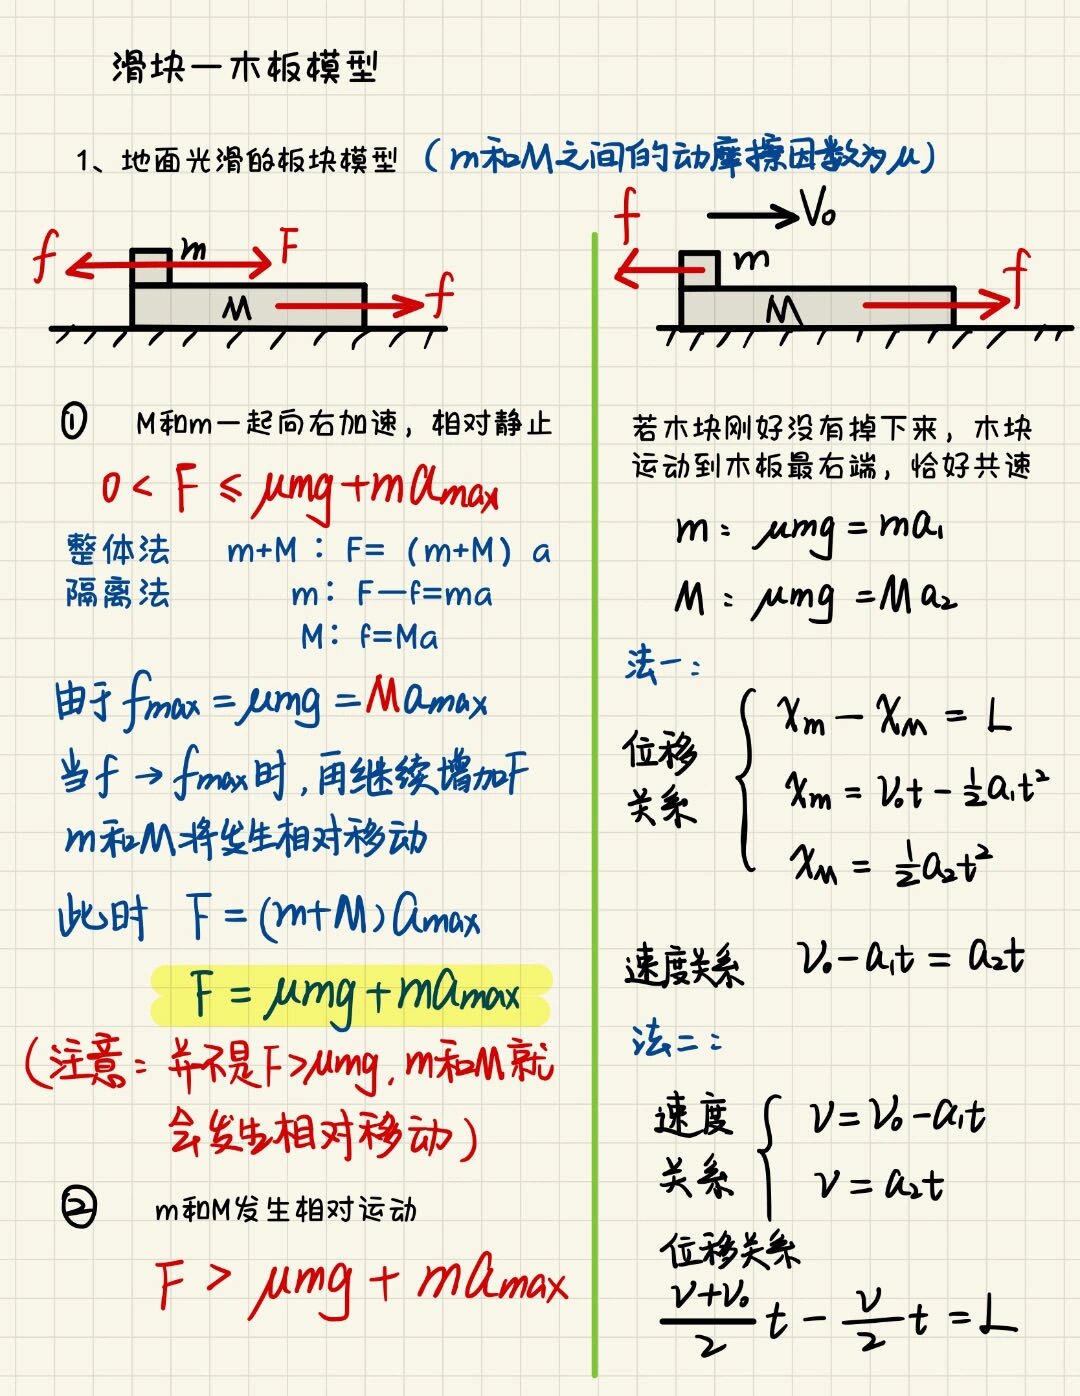 滑块一木板模型
1、地面光滑的板块模型（m和M之间的动摩擦因数为μ）
f m F
M f
① M和m一起向右加速，相对静止
0 < F ≤ μmg + mamax
整体法 m+M： F=（m+M）a
隔离法 m： F—f=ma
M： f=Ma
由于 fmax = μmg = Mamax
当 f → fmax 时，再继续增加F
m和M将发生相对移动
此时 F = (m+M) amax
F = μmg + mamax
（注意：并不是F>μmg，m和M就
会发生相对移动）
② m和M发生相对运动
F > μmg + mamax
f V₀
m f
M
若木块刚好没有掉下来，木块
运动到木板最右端，恰好共速
m： μmg = ma₁
M： μmg = Ma₂
法一：
位移关系
xm − xM = L
xm = v₀t − ½a₁t²
xM = ½a₂t²
速度关系 v₀ − a₁t = a₂t
法二：
速度关系
v = v₀ − a₁t
v = a₂t
位移关系
(v+v₀)/2 t − v/2 t = L